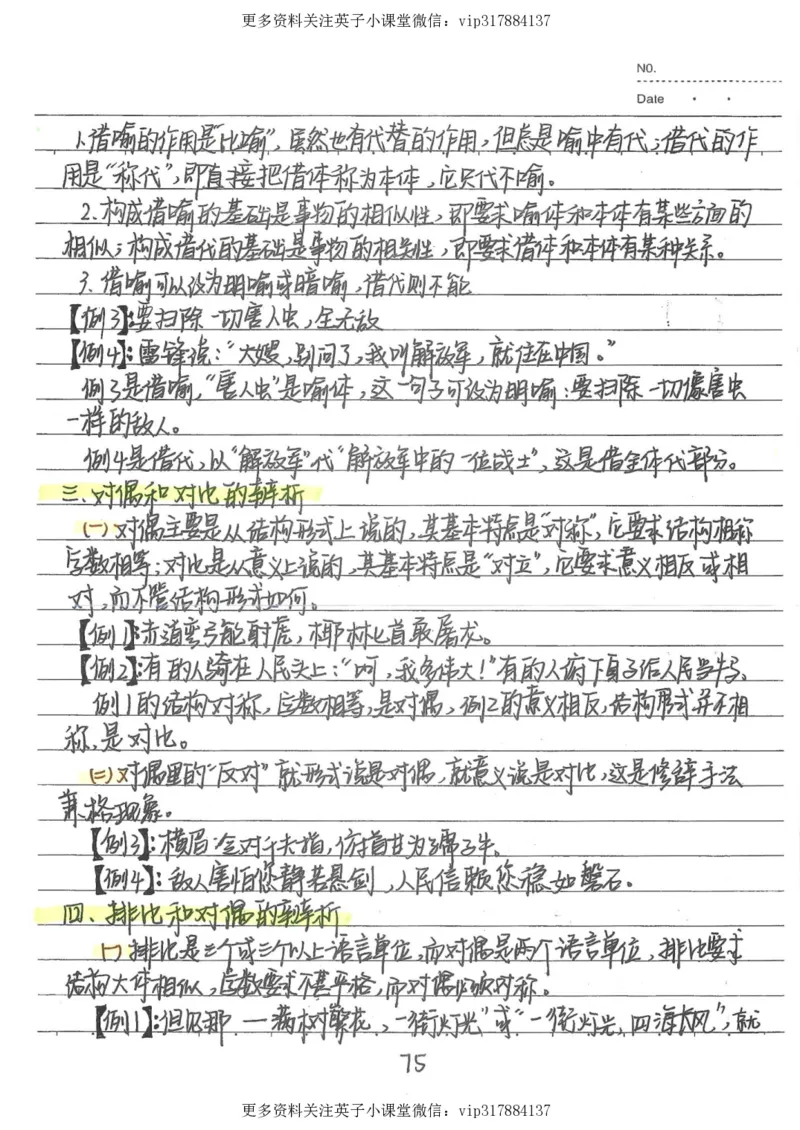 更多资料关注英子小课堂微信：vip317884137
NO.
Date
1.借喻的作用是“比喻”，虽然也有代替的作用，但总是喻中有代；借代的作
用是“称代”，即直接把借体称为本体，它只代不喻。
2.构成借喻的基础是事物的相似性，即要求喻体和本体有某些方面的
相似；构成借代的基础是事物的相关性，即要求借体和本体有某种关系。
3.借喻可以改为明喻或暗喻，借代则不能
【例3】：要扫除一切害人虫，全无敌
【例4】：雷锋说：“大嫂，别问了，我叫解放军，就住在中国。”
例3是借喻，“害人虫”是喻体，这一句子可改为明喻：要扫除一切像害虫
一样的敌人。
例4是借代，以“解放军”代“解放军中的一位战士”，这是借全体代部分。
三、对偶和对比的辨析
(一)对偶主要是从结构形式上说的，其基本特点是“对称”，它要求结构相称
字数相等；对比是从意义上说的，其基本特点是“对立”，它要求意义相反或相
对，而不管结构形式如何。
【例1】：赤道弯弓能射虎，椰林匕首敢屠龙。
【例2】：有的人骑在人民头上：“呵，我多伟大！”有的人俯下身子给人民当牛马、
例1的结构对称，字数相等，是对偶，例2的意义相反，结构形式并不相
称，是对比。
(二)对偶里的“反对”就形式说是对偶，就意义说是对比，这是修辞手法
兼格现象。
【例3】：横眉冷对千夫指，俯首甘为孺子牛。
【例4】：敌人害怕您静若悬剑，人民信赖您稳如磐石。
四、排比和对偶的辨析
(一)排比是三个或三个以上语言单位，而对偶是两个语言单位，排比要求
结构大体相似，字数要求不甚严格，而对偶必须对称。
【例1】：但见那一一满树繁花，一街灯光”或“一街灯光，四海长风”，就
75
更多资料关注英子小课堂微信：vip317884137